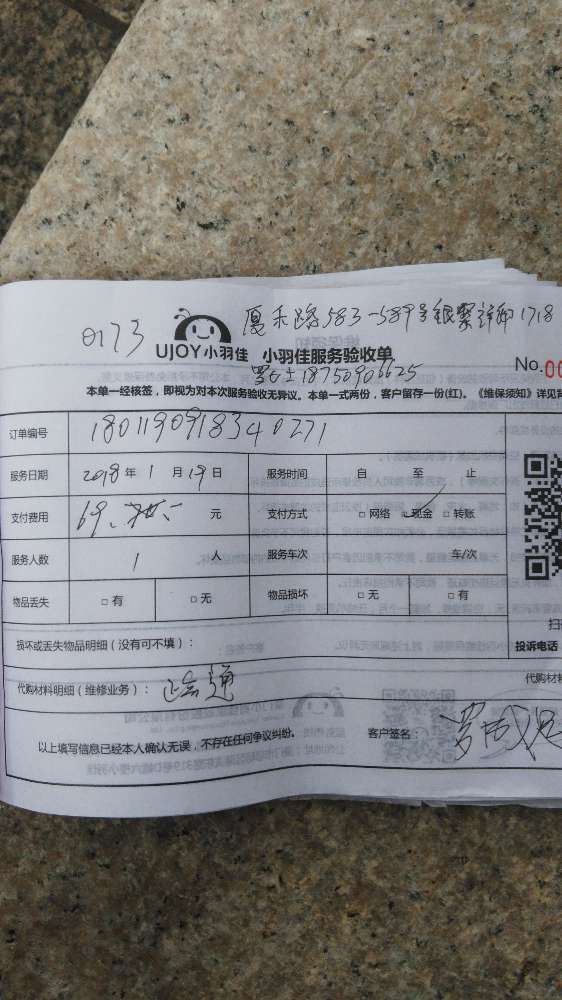 0173 厦禾路583-589号银聚祥邸1718
UJOY小羽佳 小羽佳服务验收单
罗女士18750906625 No.00
本单一经核签，即视为对本次服务验收无异议。本单一式两份，客户留存一份(红)。《维保须知》详见背
订单编号 1801190918340271
服务日期 2018年1月19日 服务时间 自 至 止
支付费用 69、 元 支付方式 □网络 □现金 □转账
服务人数 1 人 服务车次 车/次
物品丢失 □有 □无 物品损坏 □无 □有
扫
损坏或丢失物品明细（没有可不填）： 投诉电话
代购材料明细（维修业务）： 代购材
以上填写信息已经本人确认无误，不存在任何争议纠纷。 客户签名：